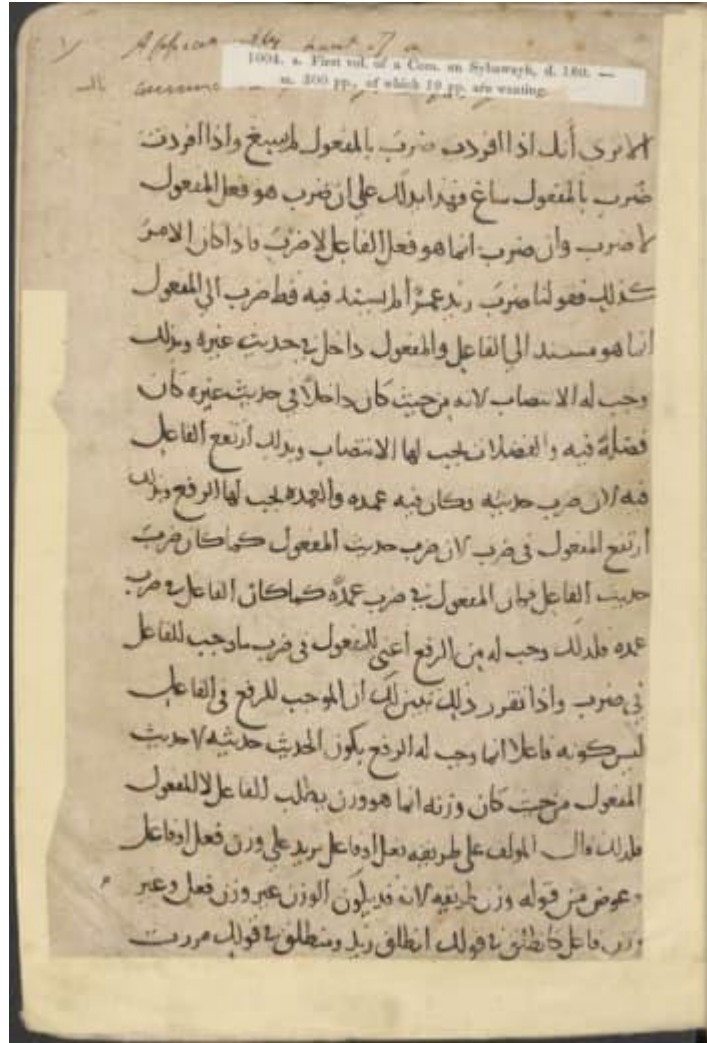 1004. a. First vol. of a Com. on Sybawayh, d. 160. —
m. 300 pp., of which 19 pp. are wanting.
الا ترى أنك اذا افردت ضرب بالمفعول لم يسغ واذا افردت
ضُرب بالمفعول ساغ فهذا يدلك على ان ضرب هو فعل المفعول
لا ضرب وان ضرب انما هو فعل الفاعل لا ضرب فاذا كان الامر
كذلك فقولنا ضرب زيد عمرًا لم يسند فيه قط ضرب الى المفعول
انما هو مسند الى الفاعل والمفعول داخل في حديث غيره وبذلك
وجب له الانتصاب لانه من حيث كان داخلا في حديث غيره كان
فضلة فيه والفضلات يجب لها الانتصاب وبذلك ارتفع الفاعل
فيه لان ضرب حديثه وكان فيه عمده والعمده يجب لها الرفع وبذلك
ارتفع المفعول في ضرب لان ضرب حديث المفعول كما كان ضرب
حديث الفاعل فكان المفعول في ضرب عمدة كما كان الفاعل في ضرب
عمده فلذلك وجب له من الرفع أعني للمفعول في ضرب ما وجب للفاعل
في ضرب واذا تقرر ذلك تبين لك ان الموجب للرفع في الفاعل
ليس كونه فاعلا انما وجب له الرفع بكون الحديث حديثه لا حديث
المفعول من حيث كان وزنه انما هو وزن يطلب للفاعل لا للمفعول
فلذلك قال المولف على طريقه فعل او فاعل يريد على وزن فعل او فاعل
وعوض من قوله وزن طريقه لانه قد يكون الوزن غير وزن فعل وغير
وزن فاعل كانطلق في قولك انطلق زيد ومنطلق في قولك مررت